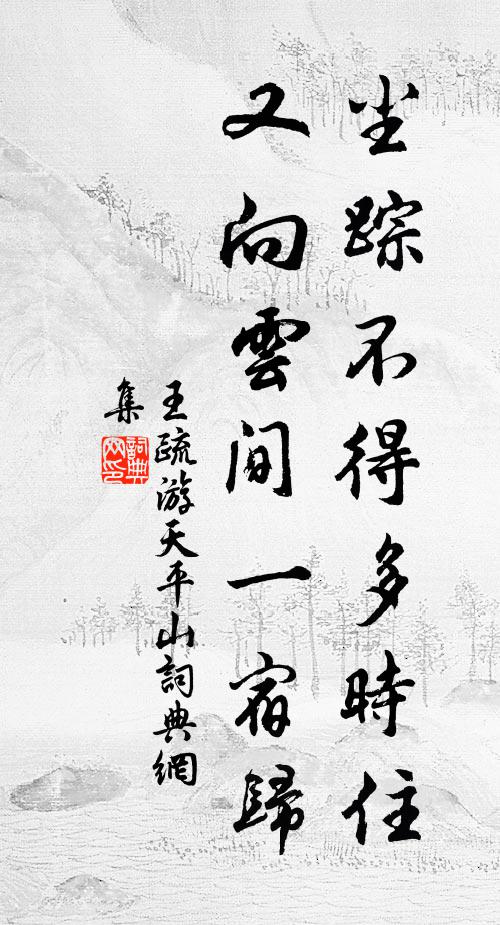 坐踪不得多時住
又向雲間一宿歸
王疏游天平山詞典網
集
詞典网印